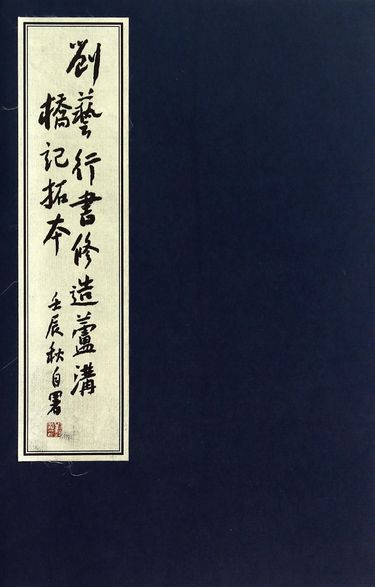 劉藝行書修造蘆溝
橋記拓本
壬辰秋自署